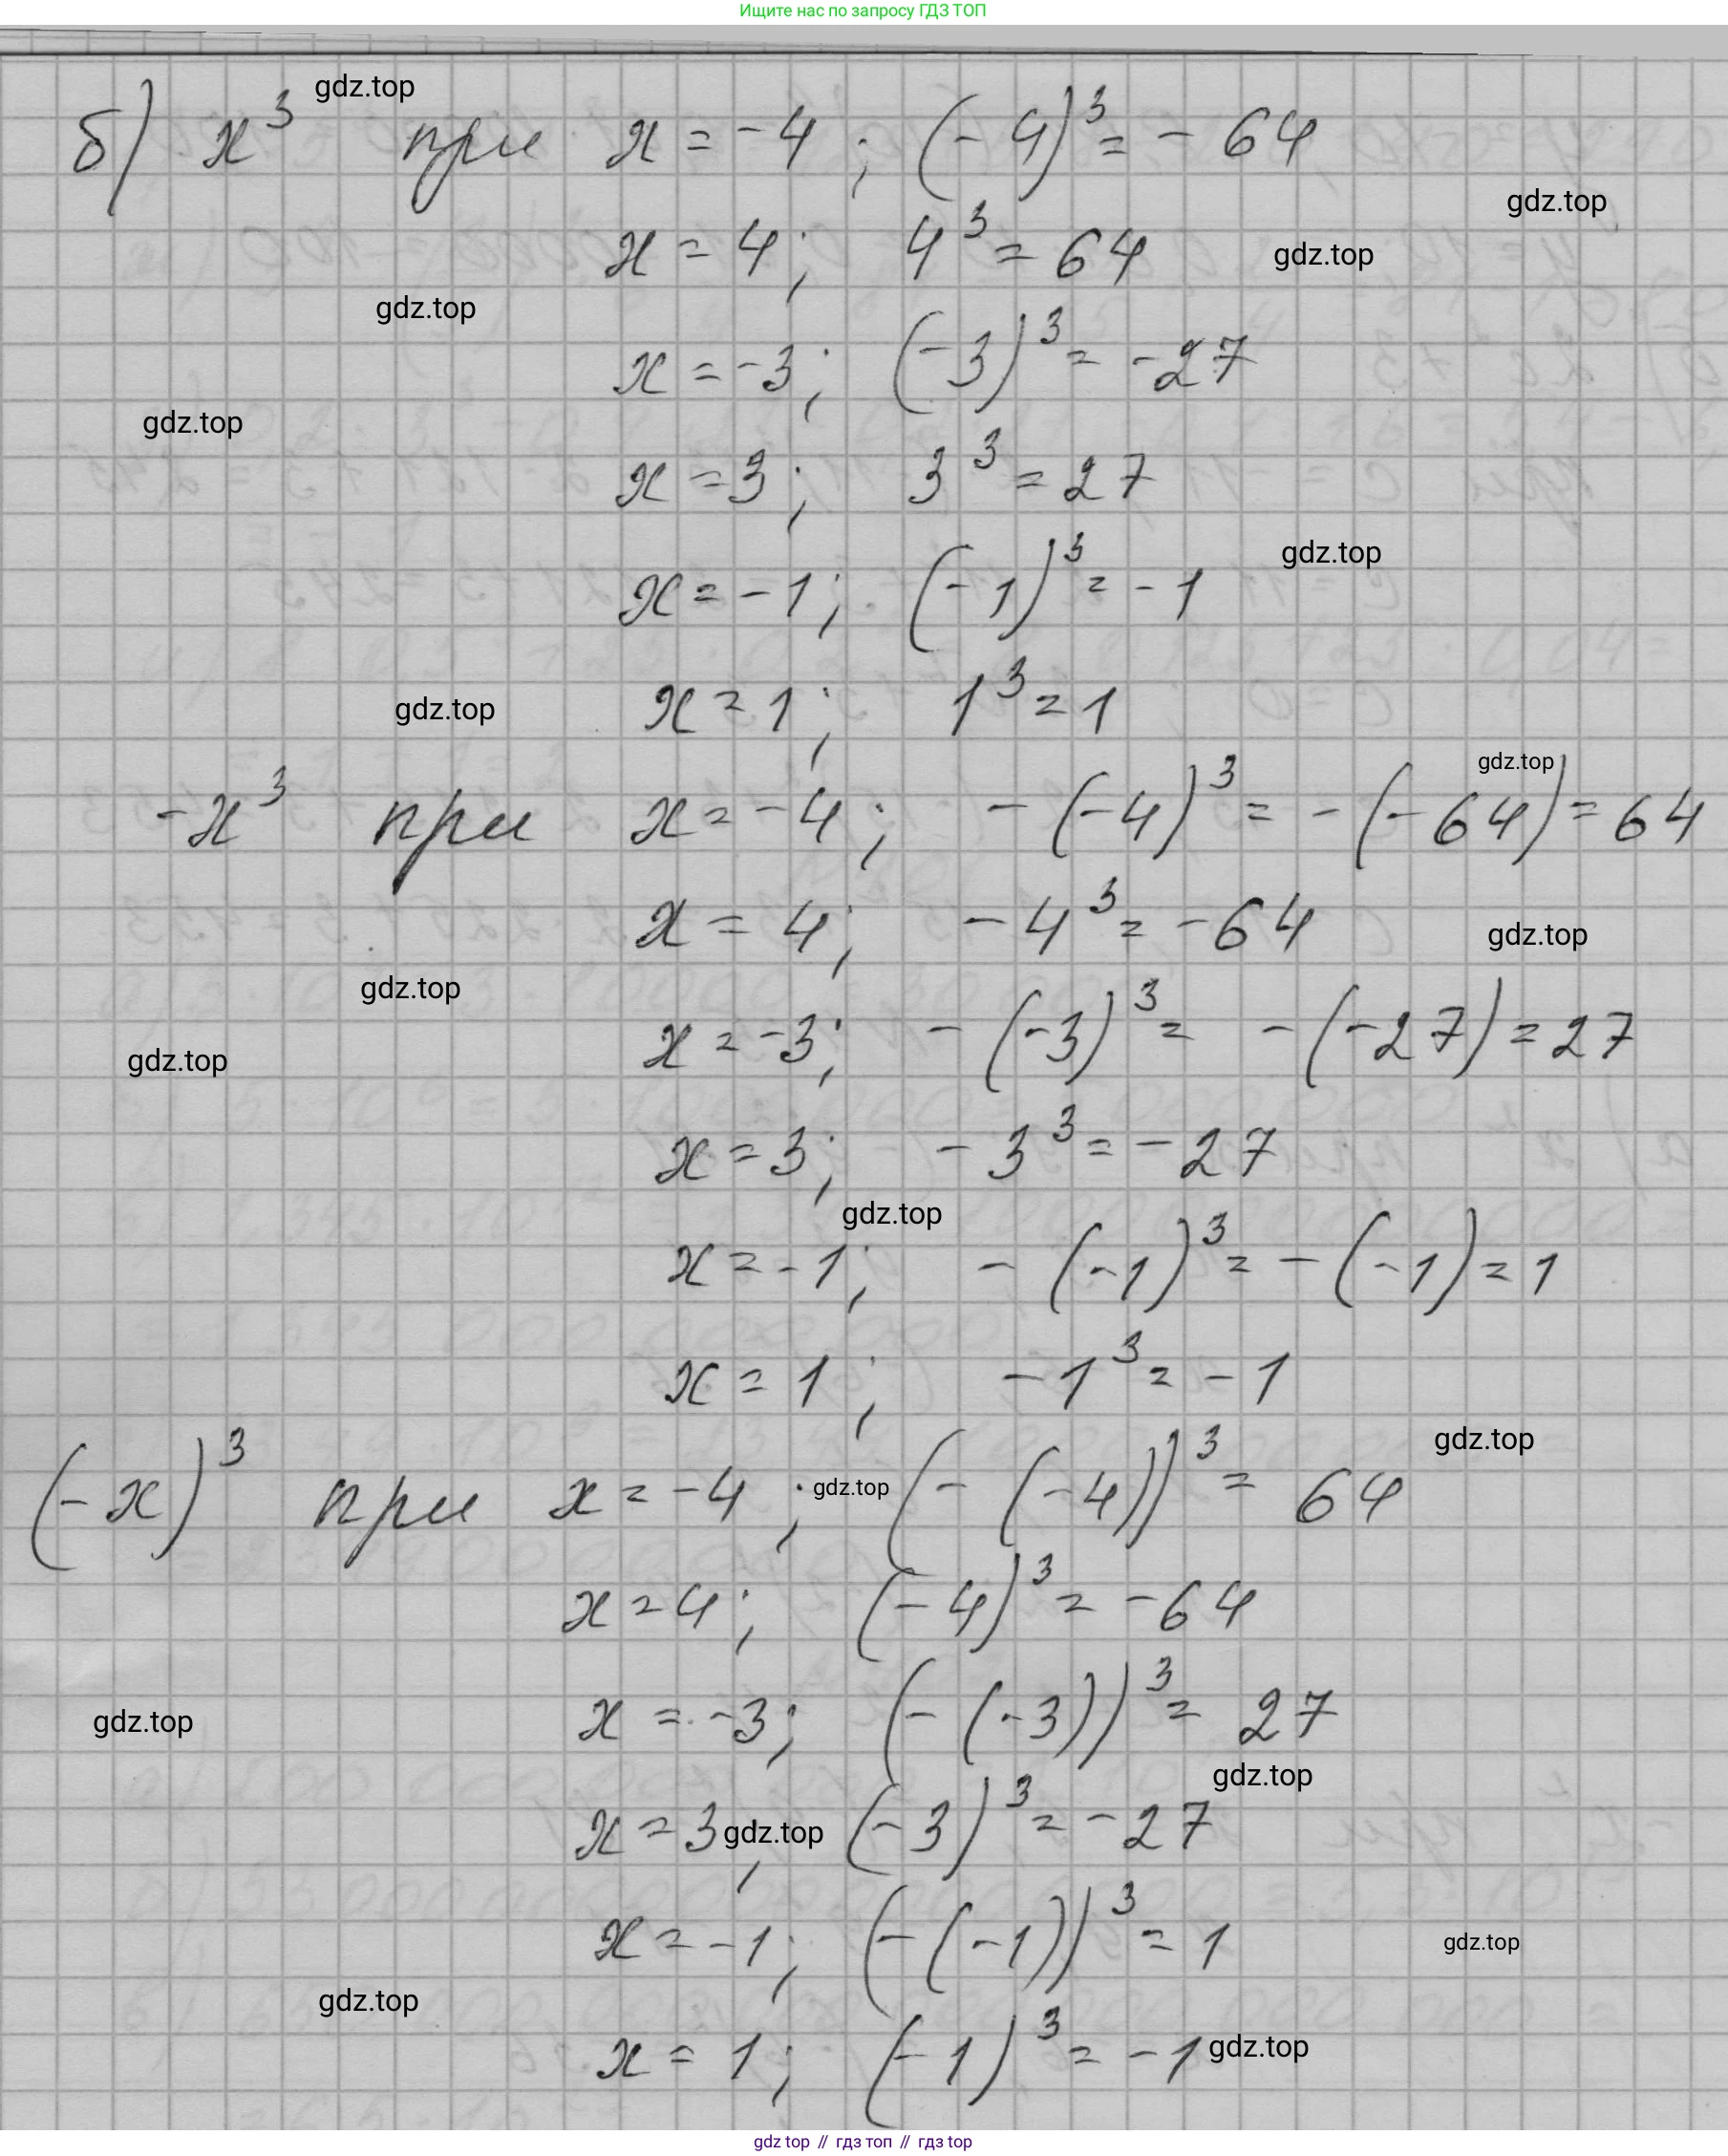 Ищите нас по запросу ГДЗ ТОП
gdz.top
б) x³ при x = -4 ; (-4)³ = -64
gdz.top
x = 4 ; 4³ = 64
gdz.top
gdz.top
x = -3 ; (-3)³ = -27
gdz.top
x = 3 ; 3³ = 27
gdz.top
x = -1 ; (-1)³ = -1
gdz.top
x = 1 ; 1³ = 1
gdz.top
-x³ при x = -4 ; -(-4)³ = -(-64) = 64
x = 4 ; -4³ = -64
gdz.top
gdz.top
x = -3 ; -(-3)³ = -(-27) = 27
gdz.top
x = 3 ; -3³ = -27
gdz.top
x = -1 ; -(-1)³ = -(-1) = 1
x = 1 ; -1³ = -1
gdz.top
(-x)³ при x = -4 ; gdz.top (-(-4))³ = 64
x = 4 ; (-4)³ = -64
x = -3 ; (-(-3))³ = 27
gdz.top
gdz.top
x = 3 ; gdz.top (-3)³ = -27
x = -1 ; (-(-1))³ = 1
gdz.top
gdz.top
x = 1 ; (-1)³ = -1 gdz.top
gdz top // гдз топ // гдз top